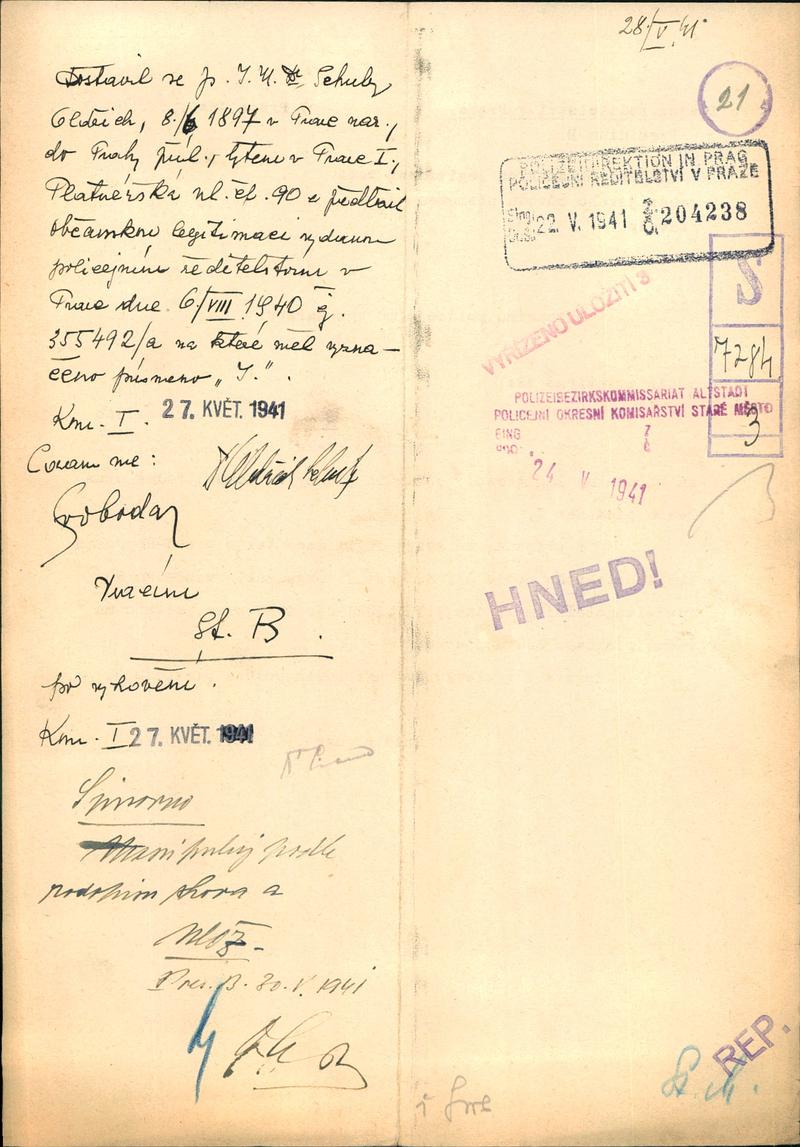 Dostavil se p. J.U.Dr. Schulz
Oldřich, 8./6 1897 v Praze nar.,
do Prahy přísl., bytem v Praze I.,
Platnéřská ul. čp. 90 a předložil
občanskou legitimaci vydanou
policejním ředitelstvím v
Praze dne 6/VIII 1940 č.
355492/a na které měl vyzna-
čeno písmeno „J.".
Kom. I. 27. KVĚT. 1941
Svoboda
Vracím
St. B.
po vyhovění.
Kom. I 27. KVĚT. 1941
podle
shora a
30. V. 1941
28/V. 41
21
POLIZEIDIREKTION IN PRAG
POLICEJNÍ ŘEDITELSTVÍ V PRAZE
Eing.
Došlo
22. V. 1941
204238
S
7284
3
VYŘÍZENO ULOŽITI 3
POLIZEIBEZIRKSKOMMISSARIAT ALTSTADT
POLICEJNÍ OKRESNÍ KOMISAŘSTVÍ STARÉ MĚSTO
EING
24 V 1941
HNED!
REP.